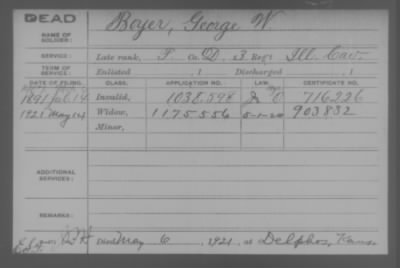 DEAD
NAME OF SOLDIER: Boyer, George W.
SERVICE: Late rank, P Co. D, 3 Regt Ill. Cav.
TERM OF SERVICE: Enlisted , 1 Discharged , 1
DATE OF FILING. CLASS. APPLICATION NO. LAW. CERTIFICATE NO.
1891 Jul 14 Invalid, 1038.598 716226
1921 May 24 Widow, 1175.556 5-1-20 903.832
Minor,
ADDITIONAL SERVICES:
REMARKS:
Died May 6, 1921, at Delphos, Kans.